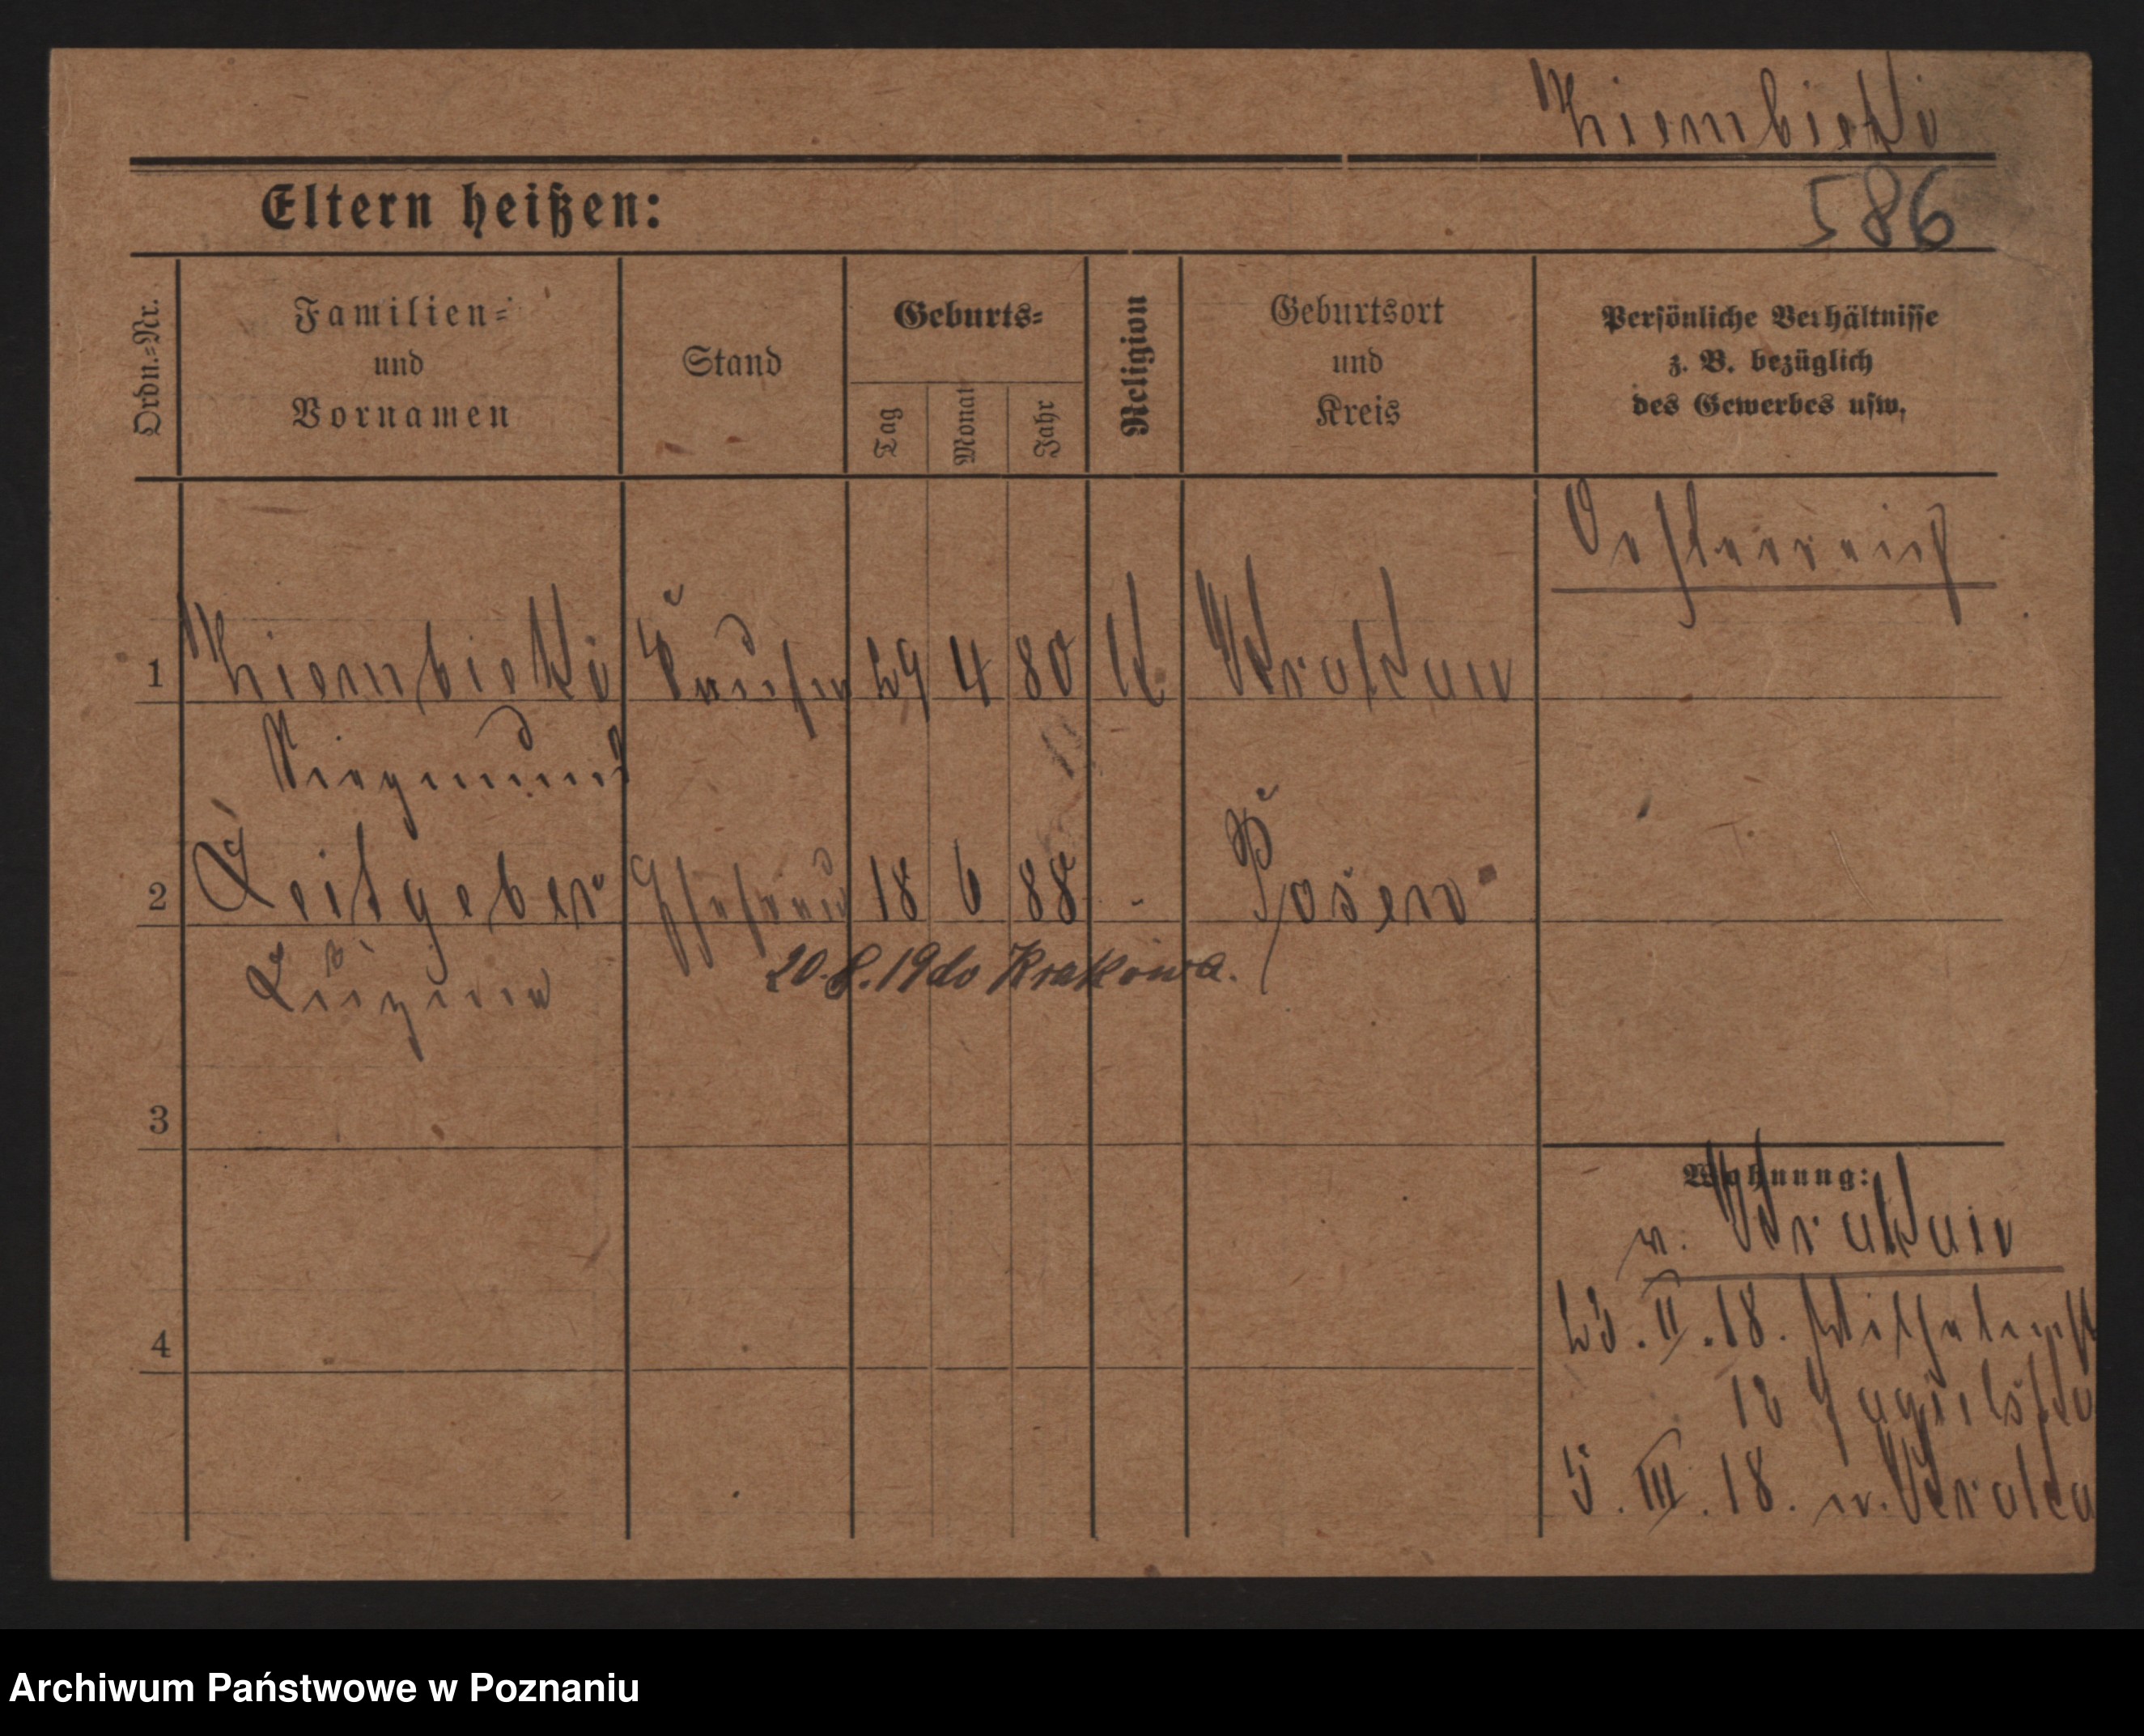 Ziembicki
Eltern heißen:
586
Ordn.-Nr.
Familien-
und
Vornamen
Stand
Geburts-
Tag
Monat
Jahr
Religion
Geburtsort
und
Kreis
Persönliche Verhältnisse
z. B. bezüglich
des Gewerbes usw.
Oesterreich
1 29 4 80 K. Krakau
Siegmund
2 Leitgeber Ehefrau 18 6 88 - Posen
20.8.19 do Krakowa.
3
Wohnung:
v. Krakau
4
23.II.18.
12
5.III.18. n. Kraka
Archiwum Państwowe w Poznaniu